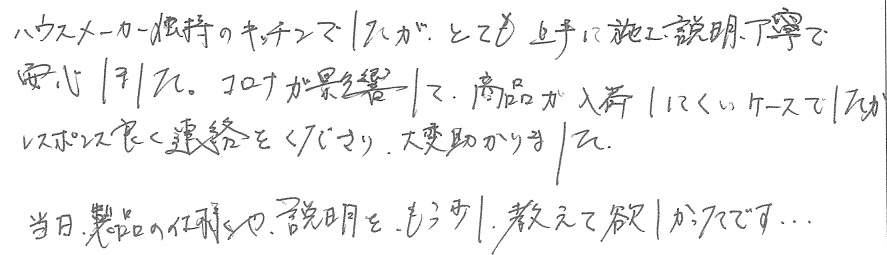 ハウスメーカー独特のキッチンでしたが、とても上手に施工、説明、丁寧で
安心しました。コロナが影響して、商品が入荷しにくいケースでしたが
レスポンス良く連絡をくださり、大変助かりました。
当日、製品の仕様や、説明を、もう少し、教えて欲しかったです...